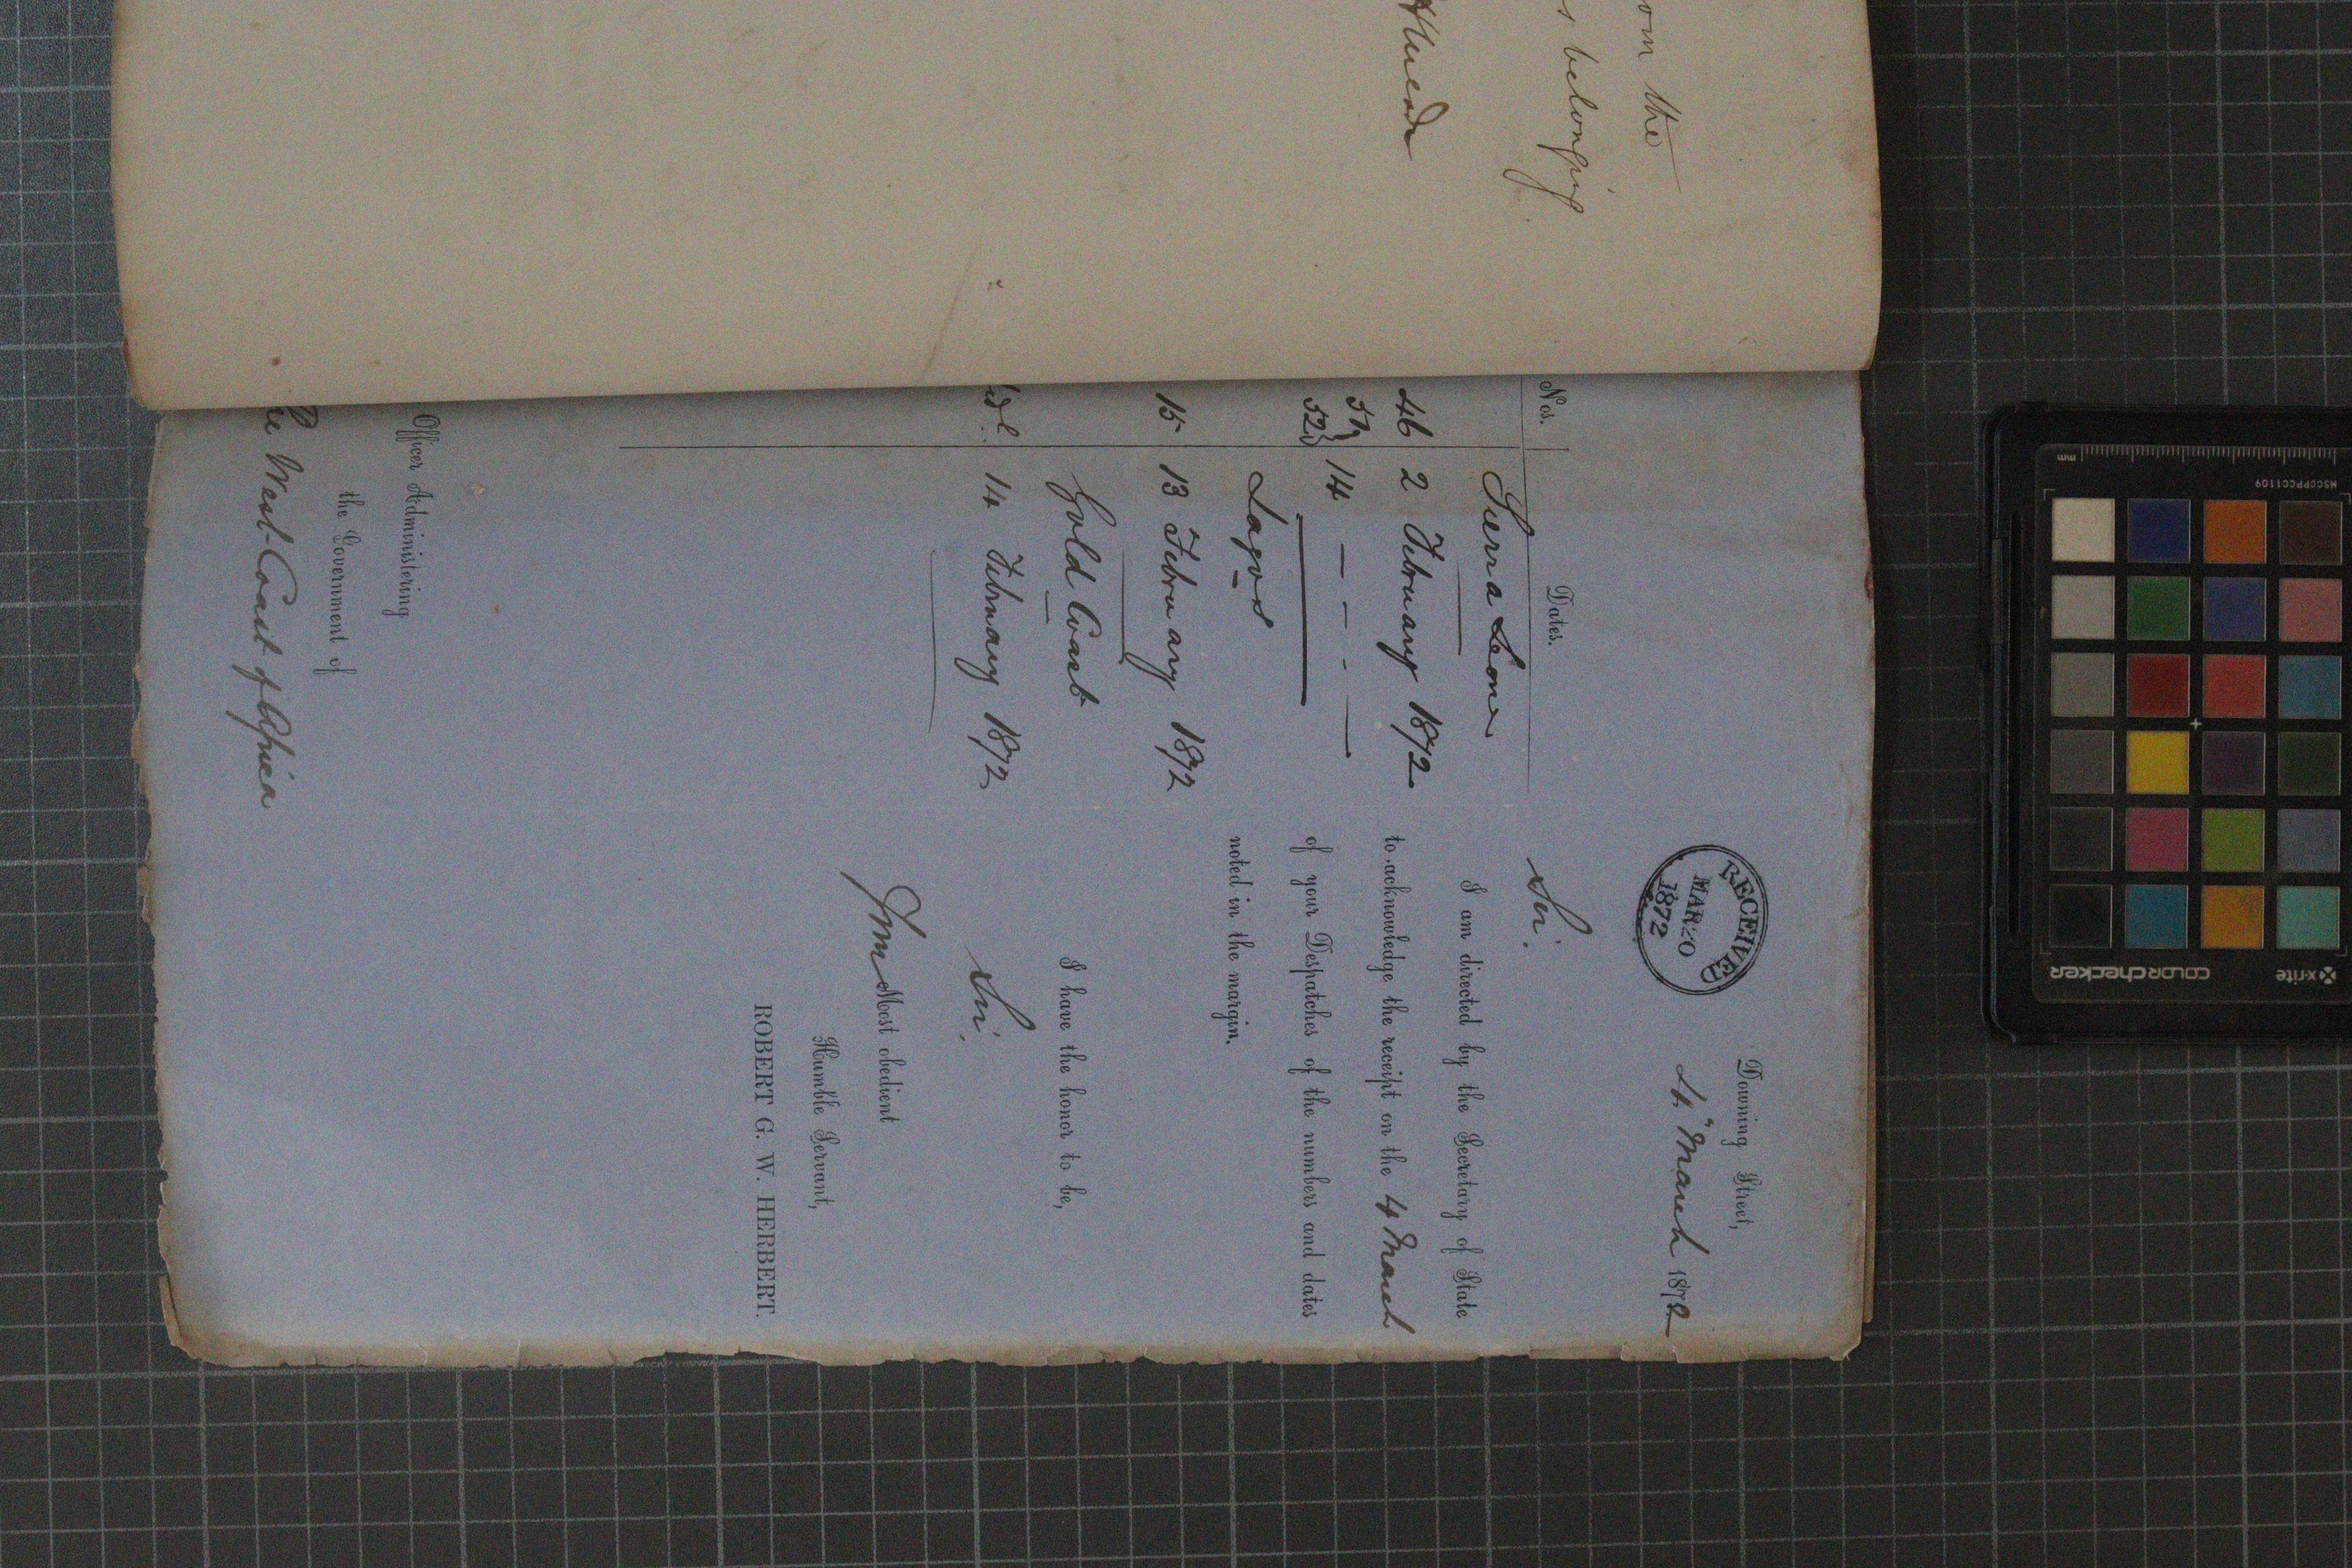 om the
s belonging
RECEIVED
MAR 20
1872
Downing Street,
4" March 1872
Nos.
Dates.
Sir.
Sierra Leone
46 2 February 1872
51
52 } 14 — — - —
Lagos
15 13 February 1872
Gold Coast
14 February 1872
I am directed by the Secretary of State
to acknowledge the receipt on the 4 March
of your Despatches of the numbers and dates
noted in the margin.
I have the honor to be,
Sir.
Your Most obedient
Humble Servant,
ROBERT G. W. HERBERT.
Officer Administering
the Government of
West Coast of Africa
mm
MSCCPPCC1109
x-rite
colorchecker